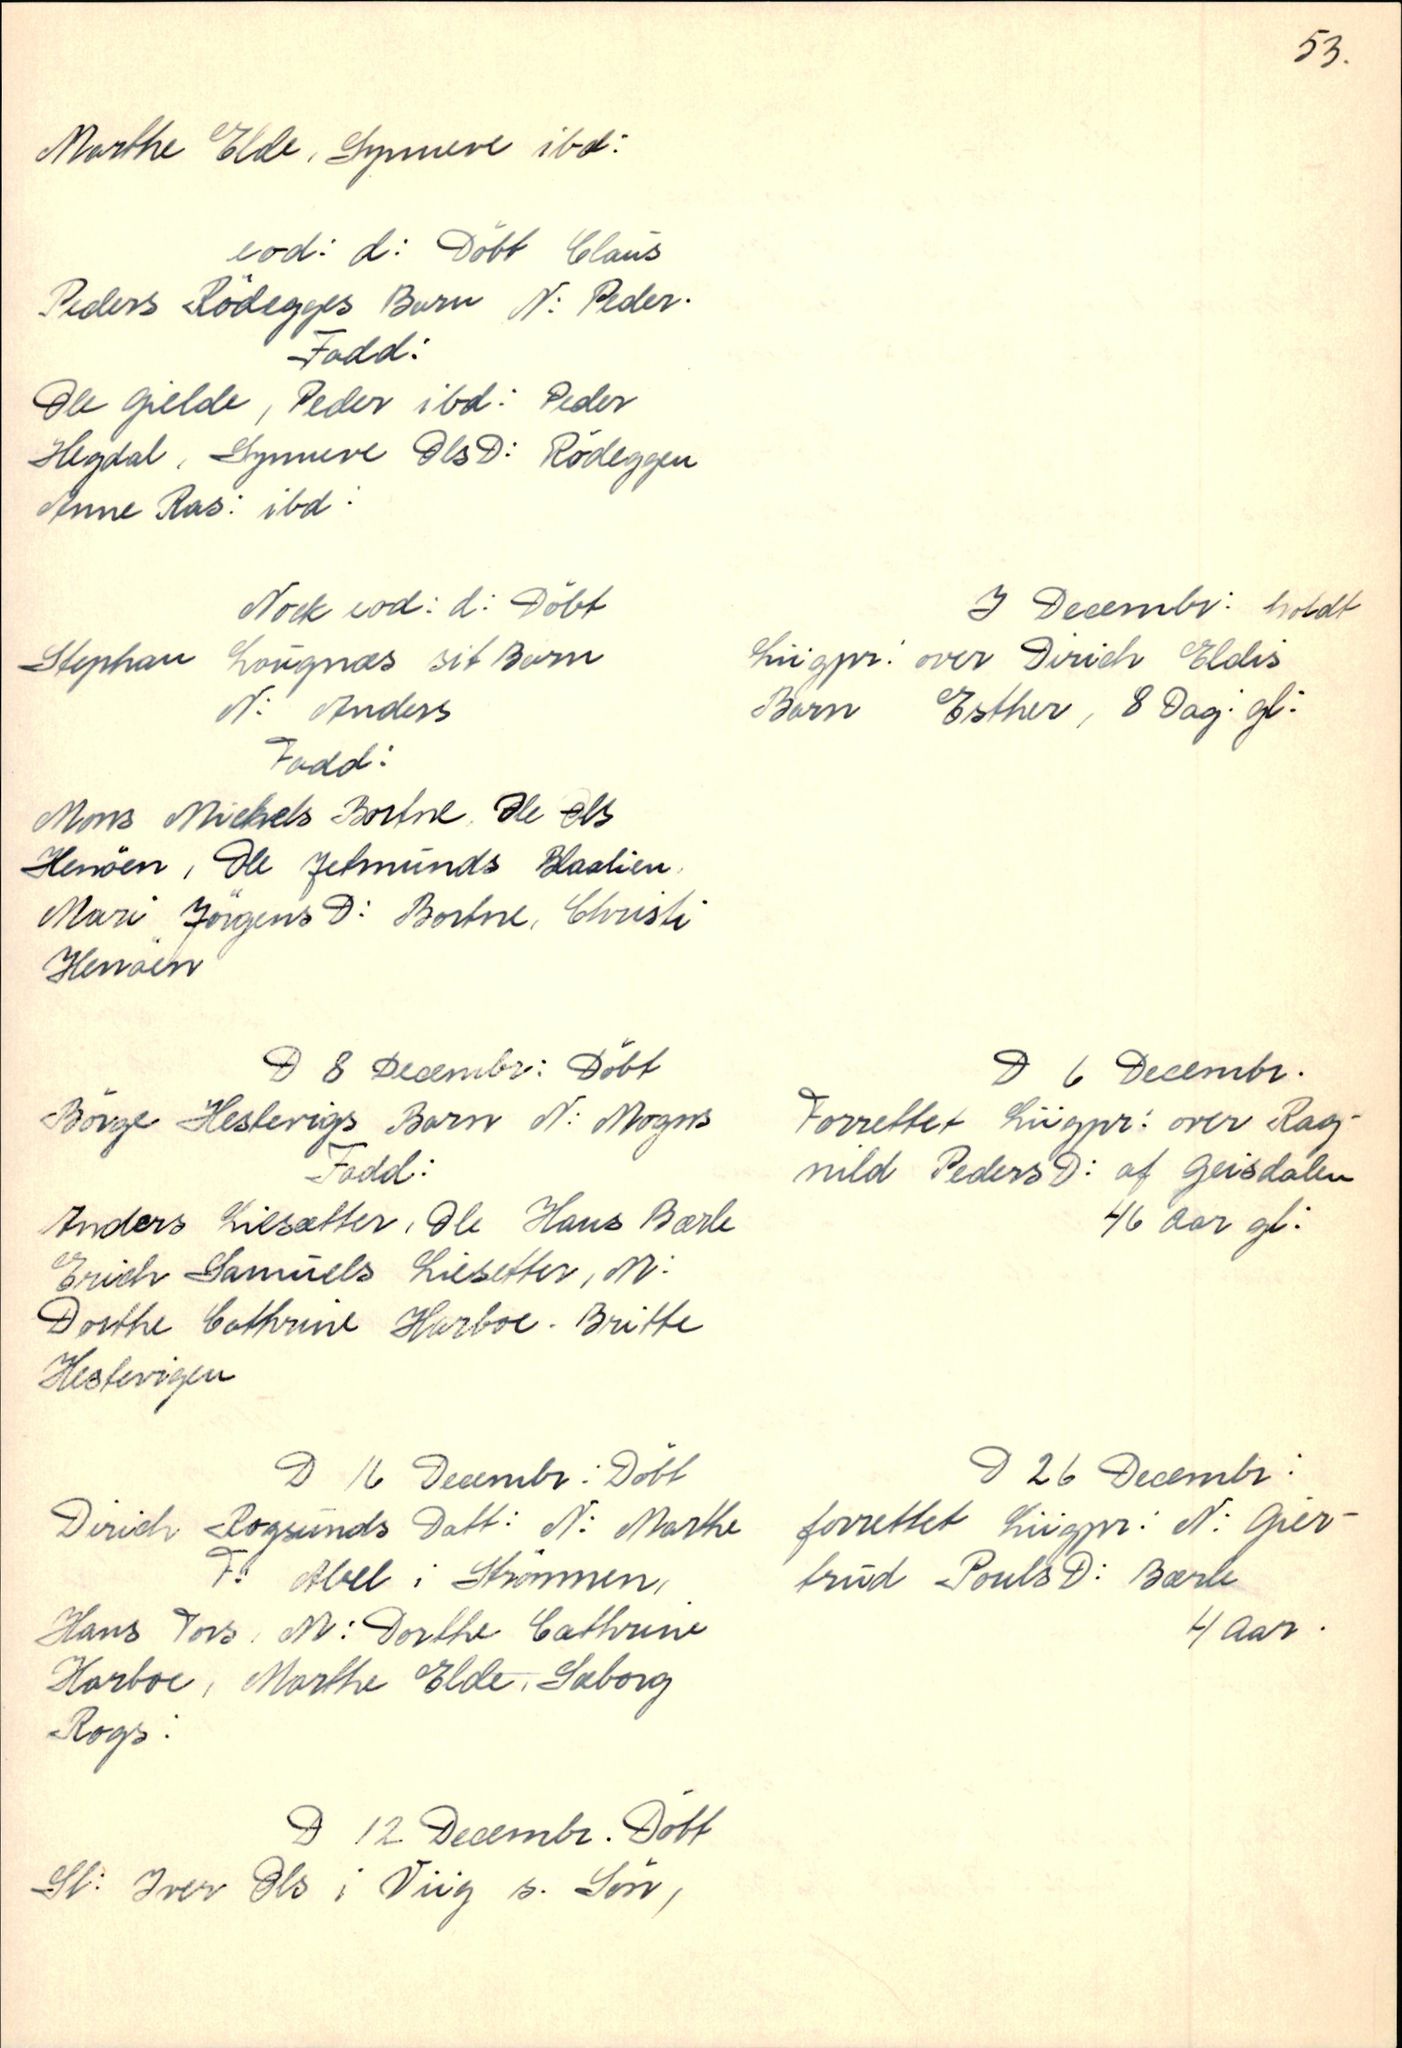 53.
Marthe Elde, Synneve ibd:
eod: d: Döbt Claus
Peders Rödegges Barn N: Peder.
Fadd:
Ole Gielde, Peder ibd: Peder
Hegdal, Synneve OlsD: Rödeggen
Anne Ras: ibd:
Nock eod: d: Döbt
Stephan Lougnæs sit Barn
N: Anders
Fadd:
Mons Mickels Bortne, Ole Ols
Henöen, Ole Jetmunds Blaalien,
Mari JörgensD: Bortne, Christi
Henöen
J Decembr: holdt
Liigpr: over Dirich Eldis
Barn Esther, 8 Dag: gl:
D 8 Decembr: Döbt
Börge Hestevigs Barn N: Mogns
Fadd:
Anders Liesætter, Ole Hans Bærle
Erich Samuels Liesetter, M:
Dorthe Cathrine Harboe. Britte
Hestevigen
D 6 Decembr.
Forrettet Liigpr: over Rag-
nild PedersD: af Geisdalen
46 Aar gl:
D 16 Decembr: Döbt
Dirich Rogsunds Datt: N: Marthe
F: Abel i Strömmen,
Hans Tors, M: Dorthe Cathrine
Harboe, Marthe Elde, Sæborg
Rogs:
D 26 Decembr:
forrettet Liigpr: N: Gier-
trud PoulsD: Bærle
4 Aar.
D 12 Decembr. Döbt
Sl: Iver Ols i Viig s. Sön,